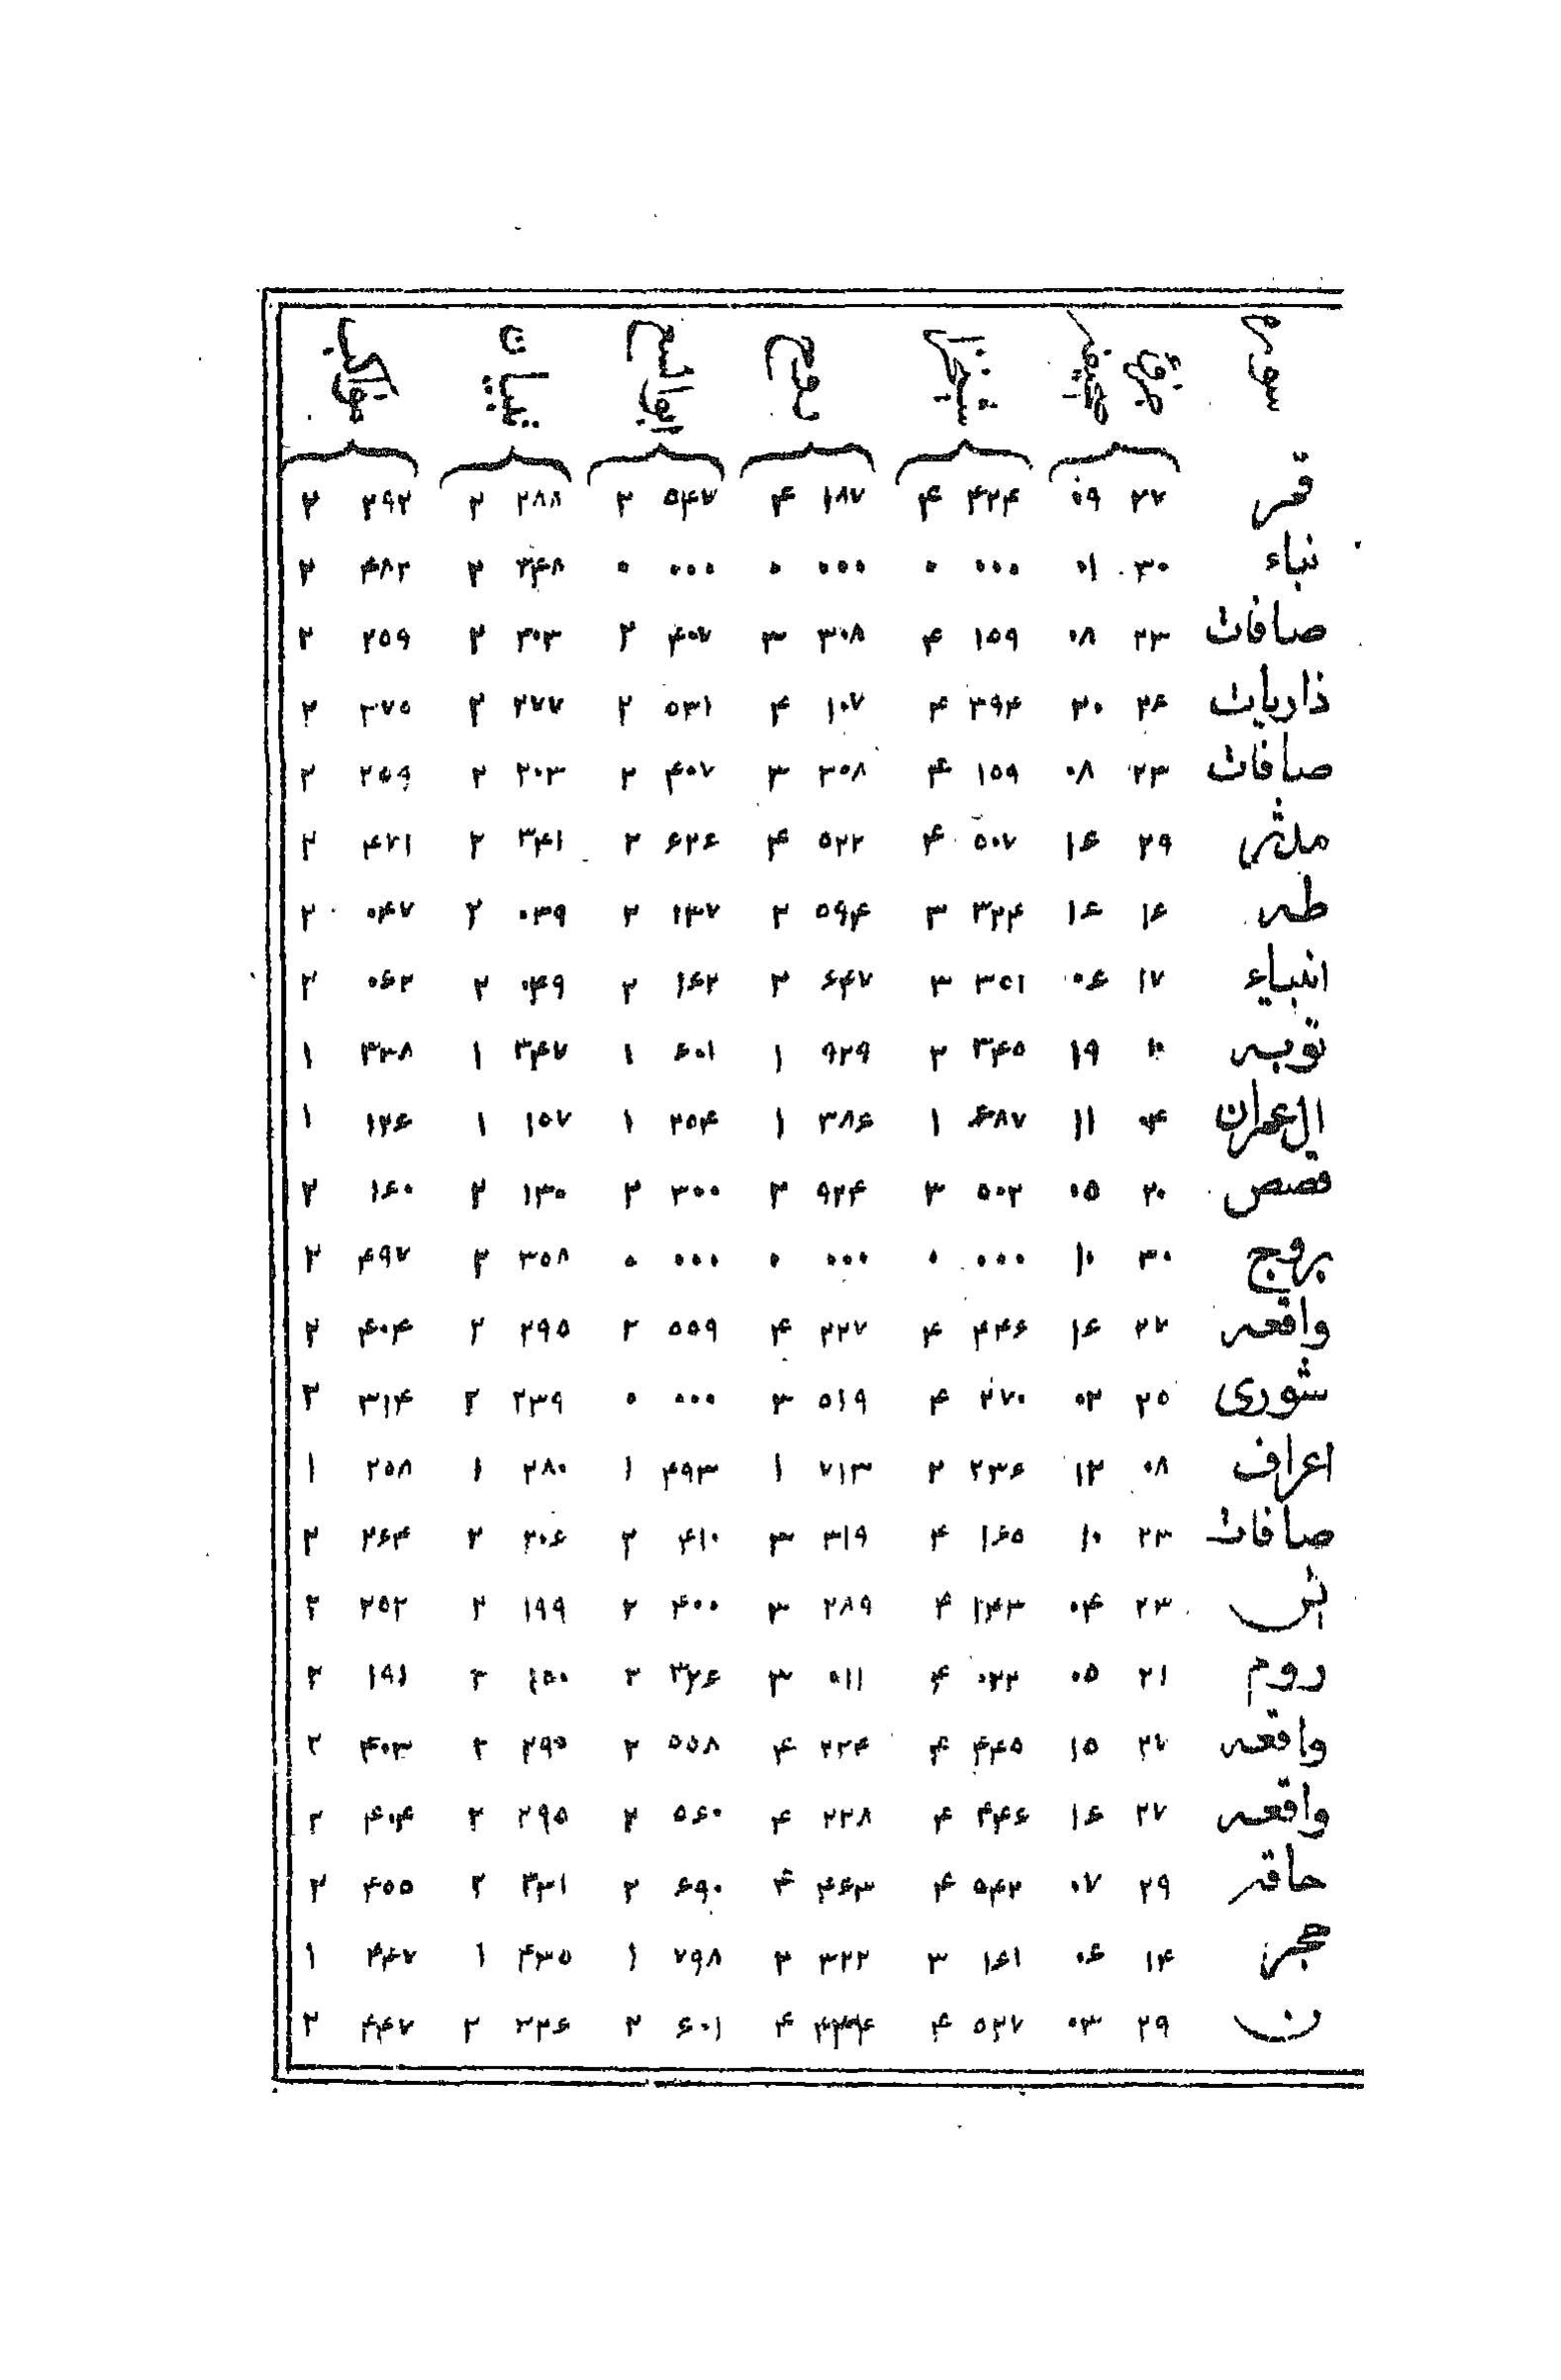 قمر ۲۷ ۰۹ ۴۲۴ ۴ ۱۸۷ ۴ ۵۴۷ ۲ ۲۸۸ ۲ ۲۹۲ ۲
نباء ۳۰ ۰۱ ۰۰۰ ۰ ۰۰۰ ۰ ۰۰۰ ۰ ۳۴۸ ۲ ۴۸۲ ۲
صافات ۲۳ ۰۸ ۱۵۹ ۴ ۳۰۸ ۳ ۴۰۷ ۲ ۲۰۳ ۲ ۲۵۹ ۲
ذاریات ۲۶ ۳۰ ۳۹۴ ۴ ۱۰۷ ۴ ۵۳۱ ۲ ۲۷۷ ۲ ۳۷۵ ۲
صافات ۲۳ ۰۸ ۱۵۹ ۴ ۳۰۸ ۳ ۴۰۷ ۲ ۲۰۳ ۲ ۲۵۹ ۲
مدثر ۲۹ ۱۶ ۵۰۷ ۴ ۵۲۲ ۴ ۶۲۶ ۲ ۳۴۱ ۲ ۴۷۱ ۲
طه ۱۶ ۱۶ ۳۲۴ ۳ ۵۹۴ ۲ ۱۳۷ ۲ ۰۳۹ ۲ ۰۴۷ ۲
انبیاء ۱۷ ۰۶ ۳۵۱ ۳ ۶۴۷ ۲ ۱۶۲ ۲ ۰۴۹ ۲ ۰۶۲ ۲
توبه ۱۰ ۱۹ ۳۴۵ ۲ ۹۲۹ ۱ ۶۰۱ ۱ ۳۴۷ ۱ ۳۳۸ ۱
ال عمران ۰۴ ۱۱ ۶۸۷ ۱ ۳۸۶ ۱ ۲۵۴ ۱ ۱۵۷ ۱ ۱۲۶ ۱
قصص ۲۰ ۰۵ ۵۰۲ ۳ ۹۲۴ ۲ ۳۰۰ ۲ ۱۳۰ ۲ ۱۶۰ ۲
بروج ۳۰ ۱۰ ۰۰۰ ۰ ۰۰۰ ۰ ۰۰۰ ۰ ۳۵۸ ۲ ۴۹۷ ۲
واقعه ۲۷ ۱۶ ۴۴۶ ۴ ۲۲۷ ۴ ۵۵۹ ۲ ۲۹۵ ۲ ۴۰۴ ۲
شوری ۲۵ ۰۲ ۲۷۰ ۴ ۵۱۹ ۳ ۰۰۰ ۰ ۲۳۹ ۲ ۳۱۴ ۲
اعراف ۰۸ ۱۲ ۲۳۶ ۲ ۷۱۳ ۱ ۴۹۳ ۱ ۲۸۰ ۱ ۲۵۸ ۱
صافات ۲۳ ۱۰ ۱۶۵ ۴ ۳۱۹ ۳ ۴۱۰ ۲ ۲۰۶ ۲ ۲۶۴ ۲
۲۳ ۰۴ ۱۴۳ ۴ ۲۸۹ ۳ ۴۰۰ ۲ ۱۹۹ ۲ ۲۵۲ ۲
روم ۲۱ ۰۵ ۰۲۲ ۴ ۰۱۱ ۳ ۳۲۶ ۲ ۱۵۰ ۲ ۱۹۱ ۲
واقعه ۲۷ ۱۵ ۴۴۵ ۴ ۲۲۴ ۴ ۵۵۸ ۲ ۲۹۵ ۲ ۴۰۳ ۲
واقعه ۲۷ ۱۶ ۴۴۶ ۴ ۲۲۸ ۴ ۵۶۰ ۲ ۲۹۵ ۲ ۴۰۴ ۲
حاقه ۲۹ ۰۷ ۵۴۲ ۴ ۴۶۳ ۴ ۶۹۰ ۲ ۳۳۱ ۲ ۴۵۵ ۲
حجر ۱۴ ۰۶ ۱۶۱ ۳ ۳۲۲ ۲ ۷۹۸ ۱ ۴۳۵ ۱ ۴۴۷ ۱
ن ۲۹ ۰۳ ۵۲۷ ۴ ۴ ۶۰۱ ۲ ۳۲۶ ۲ ۴۴۷ ۲